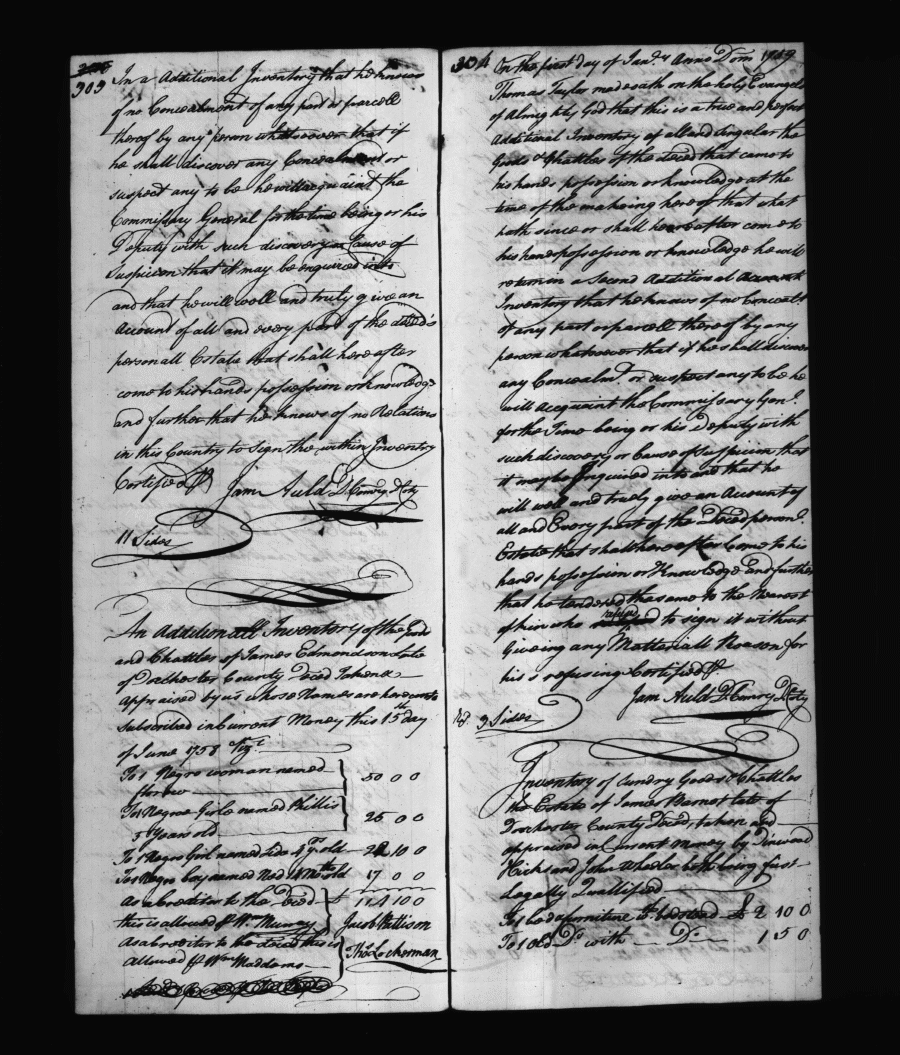 303
In a Additional Inventory that he knows
of no Concealment of any part or parcell
thereof by any person whatsoever that if
he shall discover any Concealment or
suspect any to be he will acquaint the
Commissary General for the time being or his
Deputy with such discovery or Cause of
Suspicion that it may be enquired into
and that he will well and truly give an
Account of all and every part of the deced's
personall Estate that shall hereafter
come to his hands possession or knowledge
and further that he knows of no Relations
in this Country to sign the within Inventry
Certified P
Jam Auld D Comry D Coty
11 Sides
An Additionall Inventory of the Goods
and Chattles of James Edmondson Late
of Dorchester County Deced Taken &
Appraised by us whose Names are hereunto
Subscribed in Current Money this 15th day
of June 1758 Viz.t
To 1 Negro woman named
50 0 0
To 1 Negroe Girle named Phillis
5 Years old
25 0 0
To 1 Negro Girl named 4 Yrs old 22 10 0
To 1 Negro boy named Ned 4 Mths old 17 0 0
As a Creditor to the Deced £ 114 10 0
this is allowed P Wm Murray
Jacob Pattison
As a Creditor to the deced this is
allowed P Wm Maddons
Thos Lockerman
304
On the first day of Jan.ry Anno Dom 1759
Thomas Taylor made oath on the holy Evangels
of Almighty God that this is a true and perfect
Additional Inventory of all and singular the
Goods & Chattles of the deced that came to
his hands possession or knowledge at the
time of the making hereof that what
hath since or shall hereafter come to
his hands possession or knowledge he will
return in a Second Additional Account
Inventory that he knows of no Concealt
of any part or parcell thereof by any
person whatsoever that if he shall discover
any Concealmt. or suspect any to be he
will Acquaint the Commissary Genl.
for the Time being or his Deputy with
such discovery or Cause of Suspicion that
it may be Inquired into and that he
will well and truly give an Account of
all and Every part of the Deced personl.
Estate that shall hereafter Come to his
hands possession or Knowledge and further
that he tendered the same to the Nearest
of kin who refused to sign it without
Giveing any Matteriall Reason for
his refusing Certified P.
Jam Auld D. Comry D Coty
9 Sides
Inventory of Sundry Goods & Chattles
the Estate of James Barnet late of
Dorchester County Deced, taken and
appraised in Current money by
Hicks and John Wheeler both being first
Legally Quallified
To 1 bed & furniture wth. bedstead £ 2 10 0
To 1 Old Do. with Do. 1 5 0